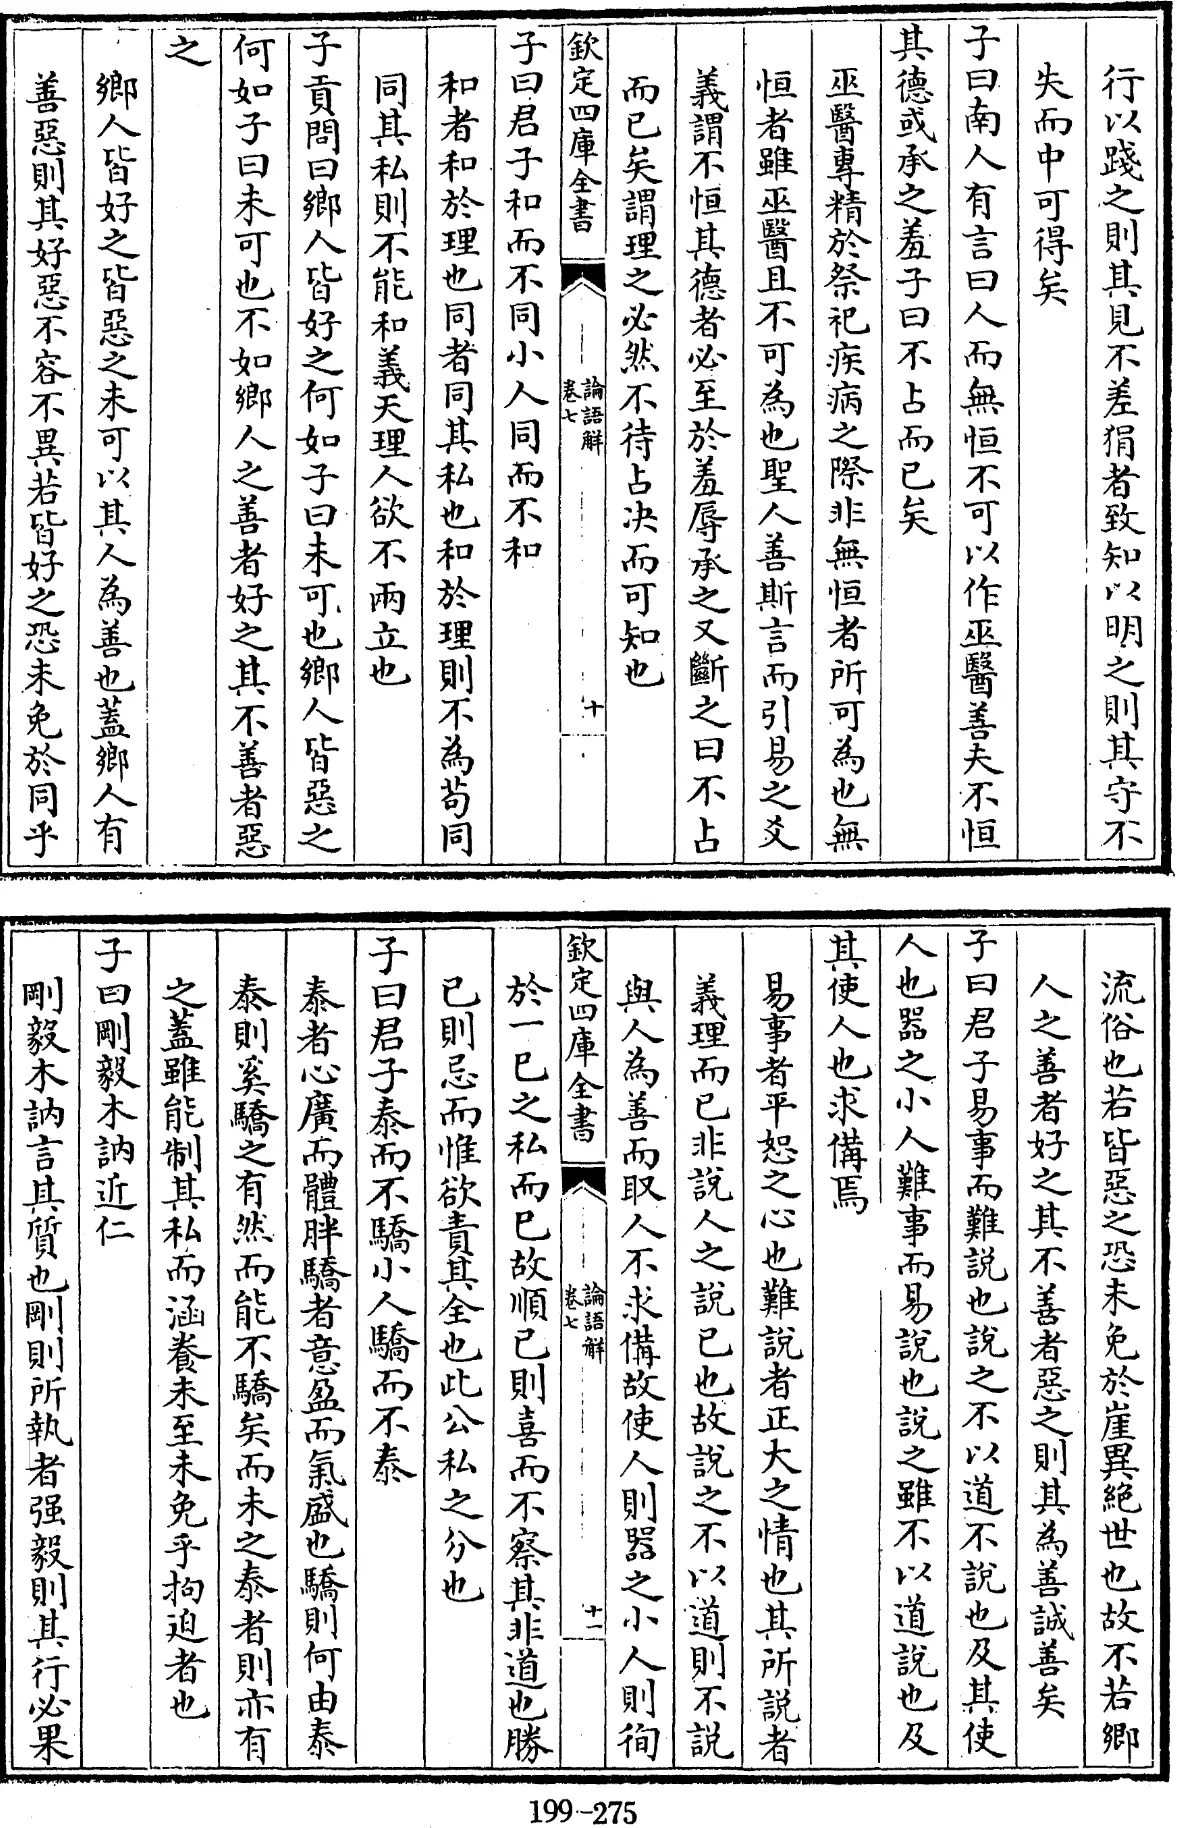 行以踐之則其見不差狷者致知以明之則其守不
失而中可得矣
子曰南人有言曰人而無恒不可以作巫醫善夫不恒
其德或承之羞子曰不占而已矣
巫醫專精於祭祀疾病之際非無恒者所可為也無
恒者雖巫醫且不可為也聖人善斯言而引易之爻
義謂不恒其德者必至於羞辱承之又斷之曰不占
而已矣謂理之必然不待占决而可知也
欽定四庫全書
論語解
卷七
十
子曰君子和而不同小人同而不和
和者和於理也同者同其私也和於理則不為苟同
同其私則不能和義天理人欲不兩立也
子貢問曰鄉人皆好之何如子曰未可也鄉人皆惡之
何如子曰未可也不如鄉人之善者好之其不善者惡
之
鄉人皆好之皆惡之未可以其人為善也蓋鄉人有
善惡則其好惡不容不異若皆好之恐未免於同乎
流俗也若皆惡之恐未免於崖異絶世也故不若鄉
人之善者好之其不善者惡之則其為善誠善矣
子曰君子易事而難説也説之不以道不説也及其使
人也器之小人難事而易説也説之雖不以道説也及
其使人也求備焉
易事者平恕之心也難説者正大之情也其所説者
義理而已非説人之説已也故説之不以道則不説
與人為善而取人不求備故使人則器之小人則徇
欽定四庫全書
論語解
卷七
十一
於一已之私而已故順已則喜而不察其非道也勝
已則忌而惟欲責其全也此公私之分也
子曰君子泰而不驕小人驕而不泰
泰者心廣而體胖驕者意盈而氣盛也驕則何由泰
泰則奚驕之有然而能不驕矣而未之泰者則亦有
之蓋雖能制其私而涵養未至未免乎拘迫者也
子曰剛毅木訥近仁
剛毅木訥言其質也剛則所執者强毅則其行必果
199-275